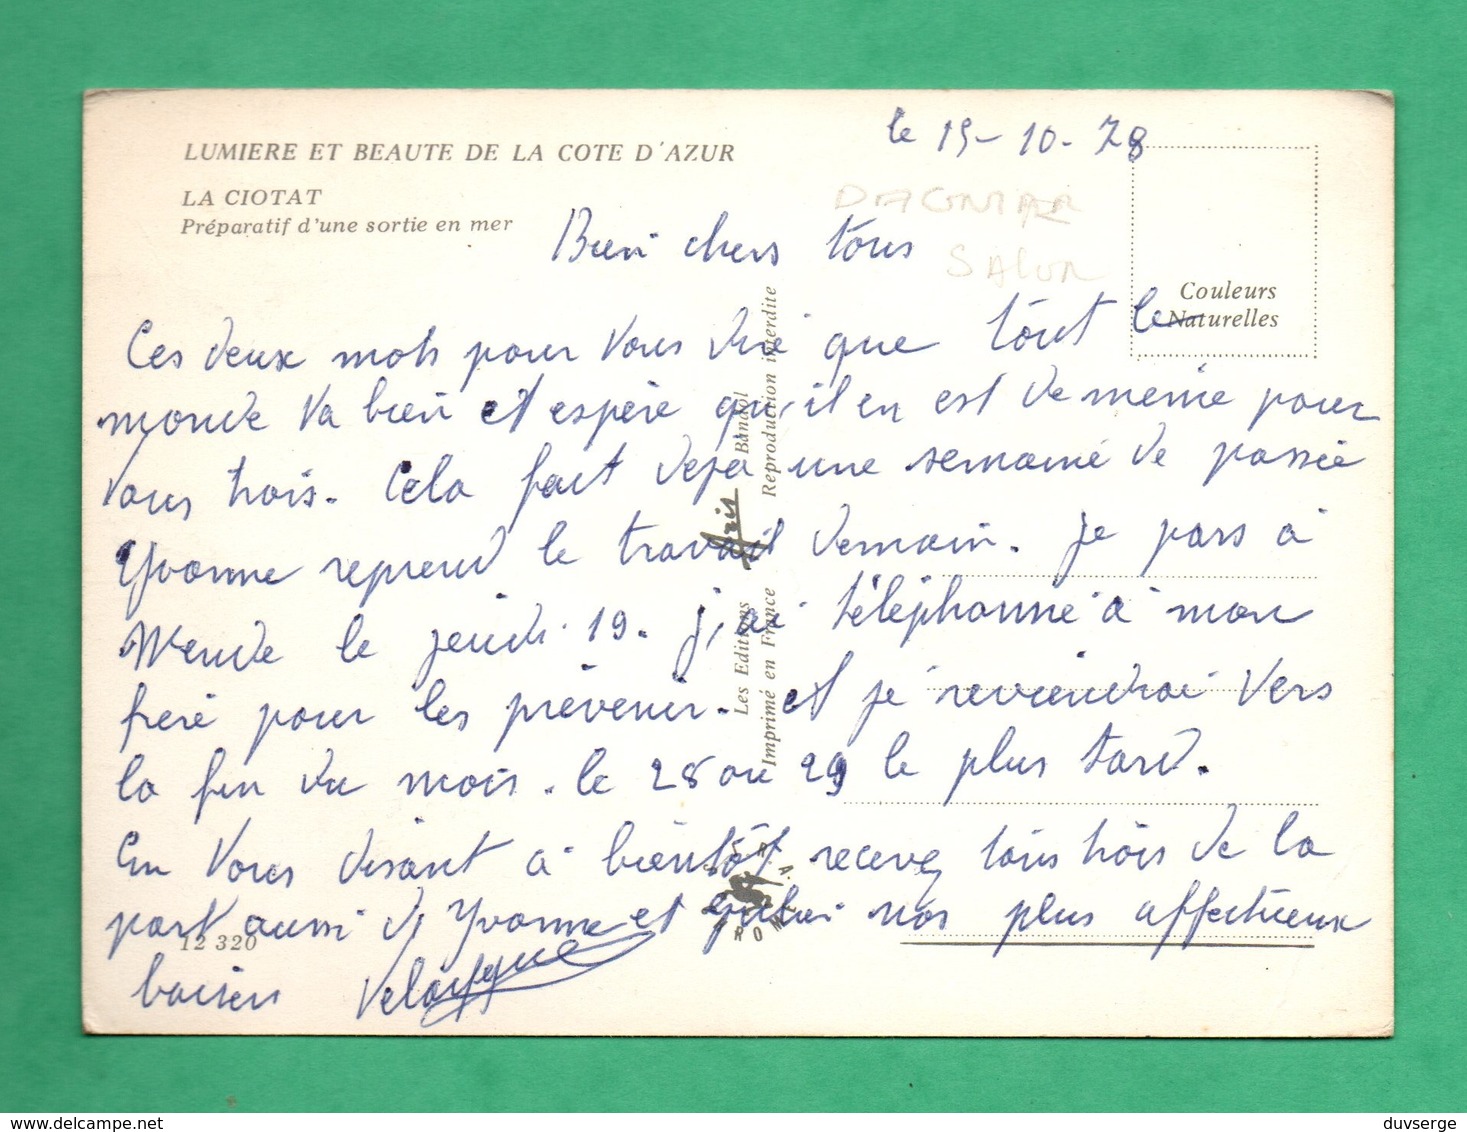 le 15-10-78
LUMIERE ET BEAUTE DE LA COTE D'AZUR
LA CIOTAT
Préparatif d'une sortie en mer
Couleurs
Naturelles
Bien chers tous
Ces deux mots pour vous dire que tout le
monde va bien et espère qu'il en est de même pour
vous trois. Cela fait deja une semaine de passée
Yvonne reprend le travail demain. Je pars à
Mende le jeudi 19. j'ai téléphonne à mon
frère pour les prévenir. et je reviendrai vers
la fin du mois. le 28 ou 29 le plus tard.
En vous disant à bientôt recevez tous trois de la
part aussi de Yvonne et nos plus affectueux
baisers
Les Editions Aris Bandol
Imprimé en France Reproduction interdite
12 320
delcampe.net
duvserge